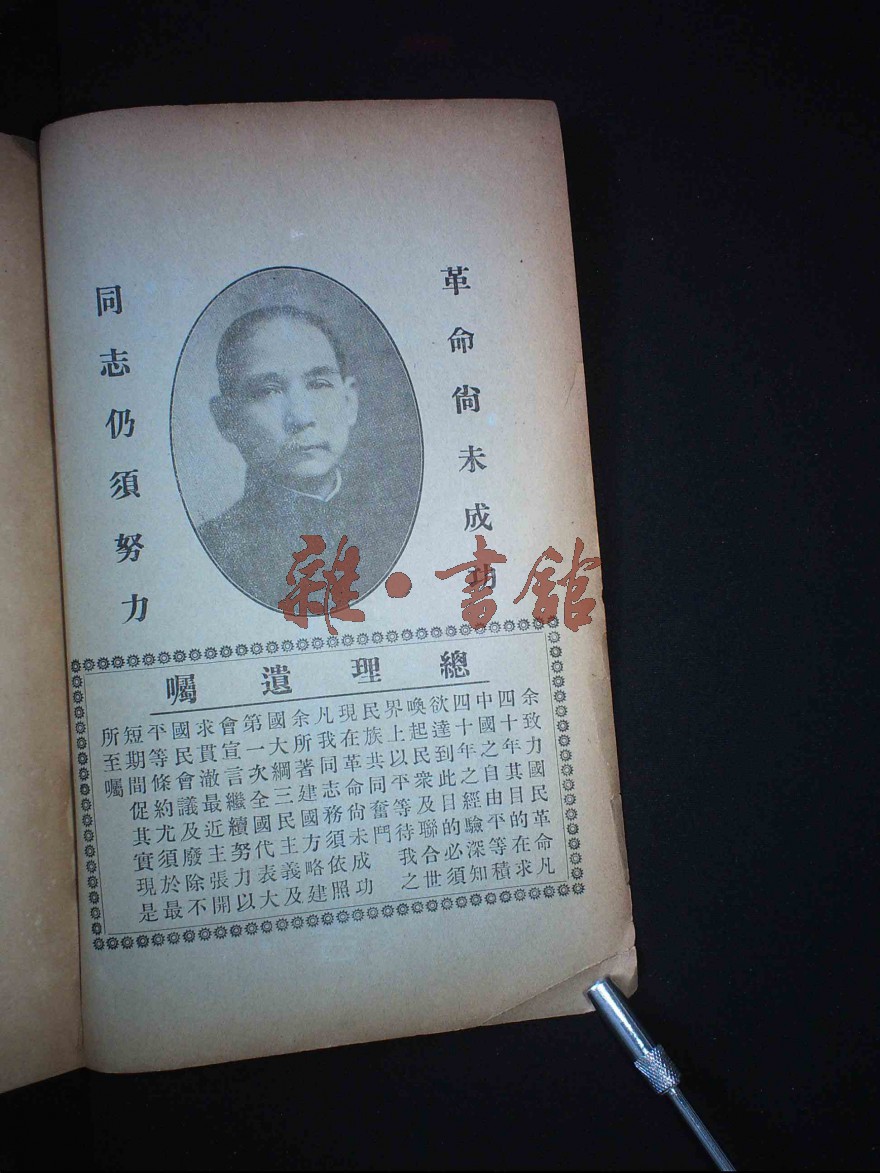 革命尙未成功
同志仍須努力
總理遺囑
余致力國民革命凡
四十年其目的在求
中國之自由平等積
四十年之經驗深知
欲達到此目的必須
喚起民衆及聯合世
界上以平等待我之
民族共同奮鬥
現在革命尙未成功
凡我同志務須依照
余所著建國方略建
國大綱三民主義及
第一次全國代表大
會宣言繼續努力以
求貫澈最近主張開
國民會議及廢除不
平等條約尤須於最
短期間促其實現是
所至囑
雜·書館